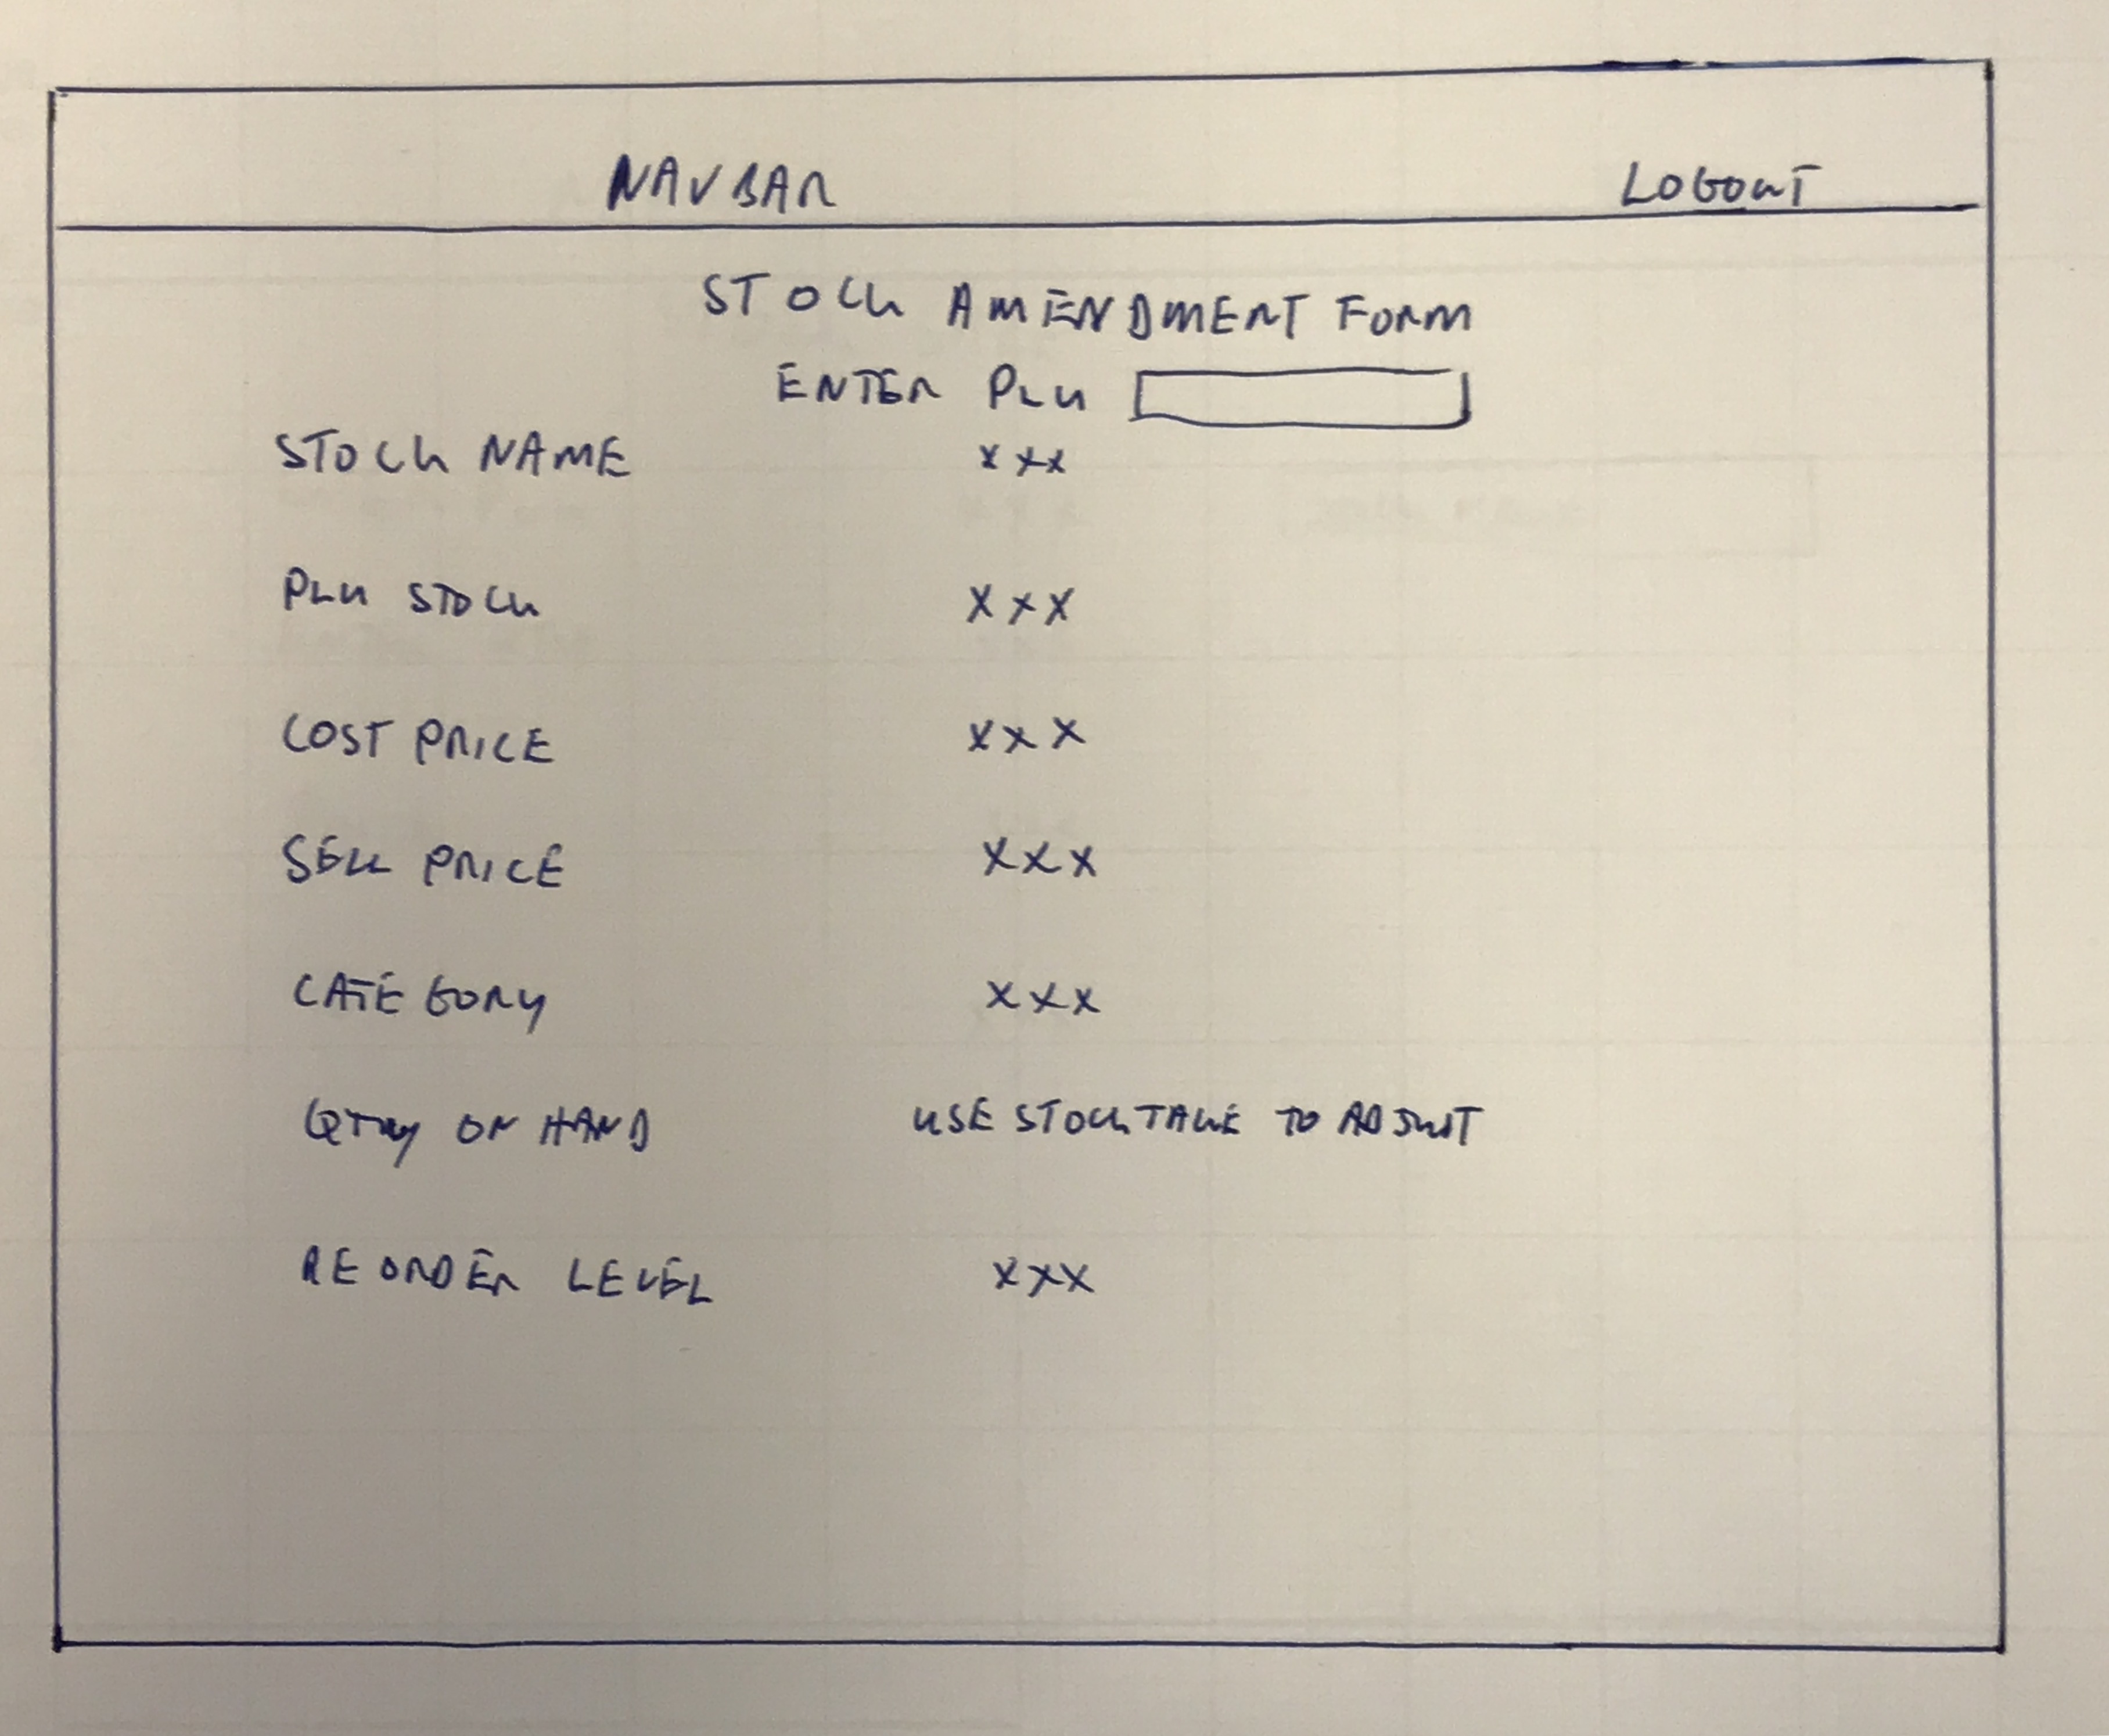 NAVBAR LOGOUT
STOCK AMENDMENT FORM
ENTER PLU
STOCK NAME XXX
PLU STOCK XXX
COST PRICE XXX
SELL PRICE XXX
CATEGORY XXX
QTY ON HAND USE STOCKTAKE TO ADJUST
REORDER LEVEL XXX